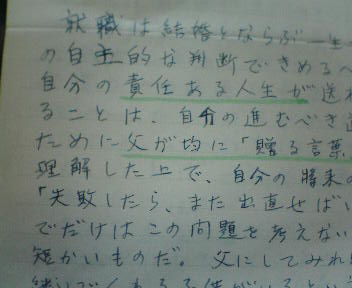 就職は結婚とならぶ一生
の自主的な判断できめるべ
自分の責任ある人生が送れ
ることは、自分の進むべき道
ために父が均に「贈る言葉
理解した上で、自分の将来の
「失敗したら、また出直せばい
でだけはこの問題を考えない
短かいものだ。父にしてみれ